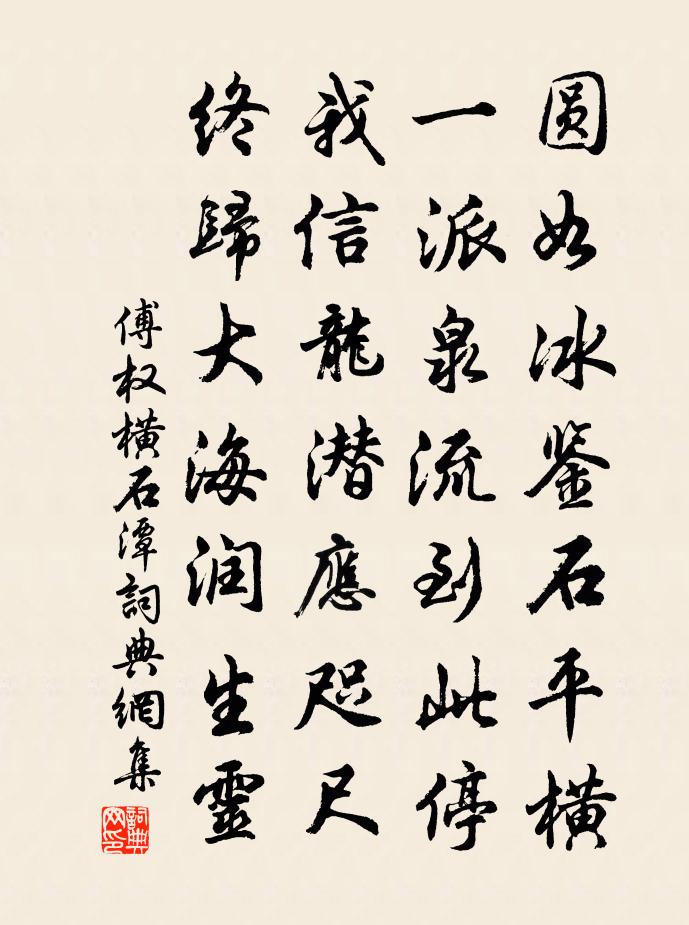 圆如冰鉴石平横
一派泉流到此停
我信龍潜應咫尺
終歸大海润生靈
傅权橫石潭詞典網集
詞典网印